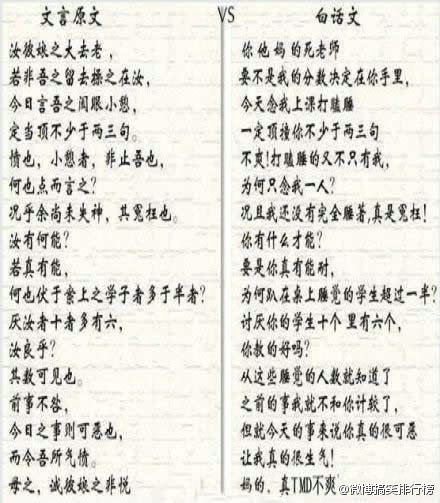 文言原文 VS 白话文
汝彼娘之大去老，
若非吾之留去操之在汝，
今日言吾之眼小憩，
定当顶不少于两三句。
情也，小憩者，非止吾也，
何也点而言之？
况乎余尚未失神，其冤枉也。
汝有何能？
若真有能，
何也伏于上之学子者多于半者？
厌汝者十者多有六，
汝良乎？
其数可见也。
前事不咎，
今日之事则可恶也，
而令吾所气愤。
母之，诚彼娘之非悦
你他妈的死老师
要不是我的分数决定在你手里，
今天念我上课打瞌睡
一定顶撞你不少于两三句
不爽！打瞌睡的又不只有我，
为何只念我一人？
况且我还没有完全睡著，真是冤枉！
你有什么才能？
要是你真有能耐，
为何趴在桌上睡觉的学生超过一半？
讨厌你的学生十个里有六个，
你教的好吗？
从这些睡觉的人数就知道了
之前的事我就不和你计较了，
但就今天的事来说你真的很可恶
让我真的很生气！
妈的，真TMD不爽
@微博搞笑排行榜